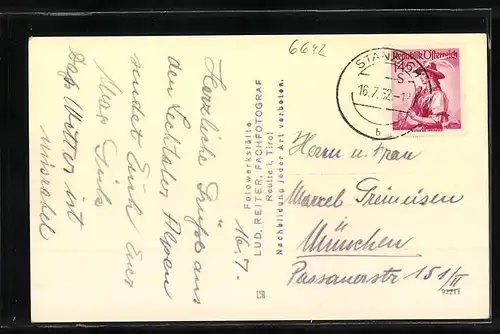 6642
STANZACH
16.7.52.-1
b
Republik Österreich
1.45
S
Herrn u. Frau
Marcel
München
Passauerstr 151/II
92213
Fotowerkstätte
LUD. REITER, FACHFOTOGRAF
Reutte i. Tirol
Nachbildung jeder Art verboten.
16.7.
Herzliche Grüße aus
den Lechtaler Alpen
sendet Euch Euer
Max
Das Wetter ist
miserabel